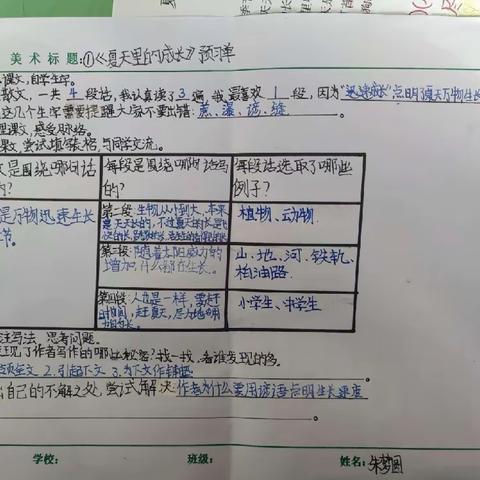 美术标题:①《夏天里的成长》预习单
课文,自学生字。
散文,一共4段话,我认真读了3遍,我最喜欢1段,因为"迅速成长"点明夏天万物生长
这几个生字需要提醒大家不要出错:蒸、瀑、谚、缝
课文,感受脉络。
课文,尝试填表格,与同学交流。
文是围绕哪句话
的?
每段是围绕哪句话写
的?
每段话选取了哪些
例子?
是万物迅速生长
节。
第二段:生物从小到大,本来
是天天长的,不过夏天的长是飞
快的长,跳跃的长,活生生的看得见的长
植物、动物
第三段:随着太阳威力的
增加,什么都在生长。
山、地、河、铁轨、
柏油路
第四段:人也是一样,要赶
时间,赶夏天,尽力地用
力地长。
小学生、中学生
注写法,思考问题。
发现了作者写作的哪些秘密?找一找,看谁发现的多。
领全文 2.引起下文 3.为下文作铺垫
出自己的不解之处,尝试解决 作者为什么要用谚语点明生长速度
学校: 班级: 姓名:朱梦圆